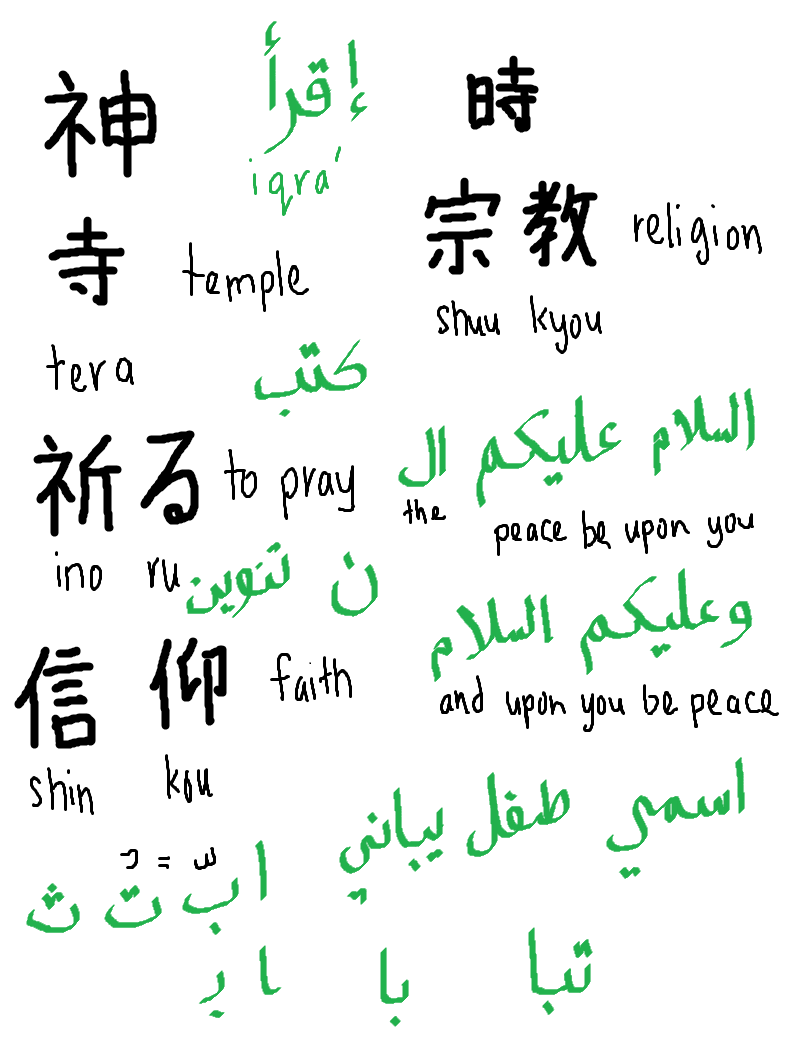 神 إقرأ 時
iqra'
宗教 religion
寺 temple
shuu kyou
tera
كتب
السلام عليكم ال
祈る to pray
the peace be upon you
ino ru
ن تنوين
وعليكم السلام
信仰 faith
and upon you be peace
shin kou
اسمي طفل يباني
ا ب ت ث
تبا با ا ب